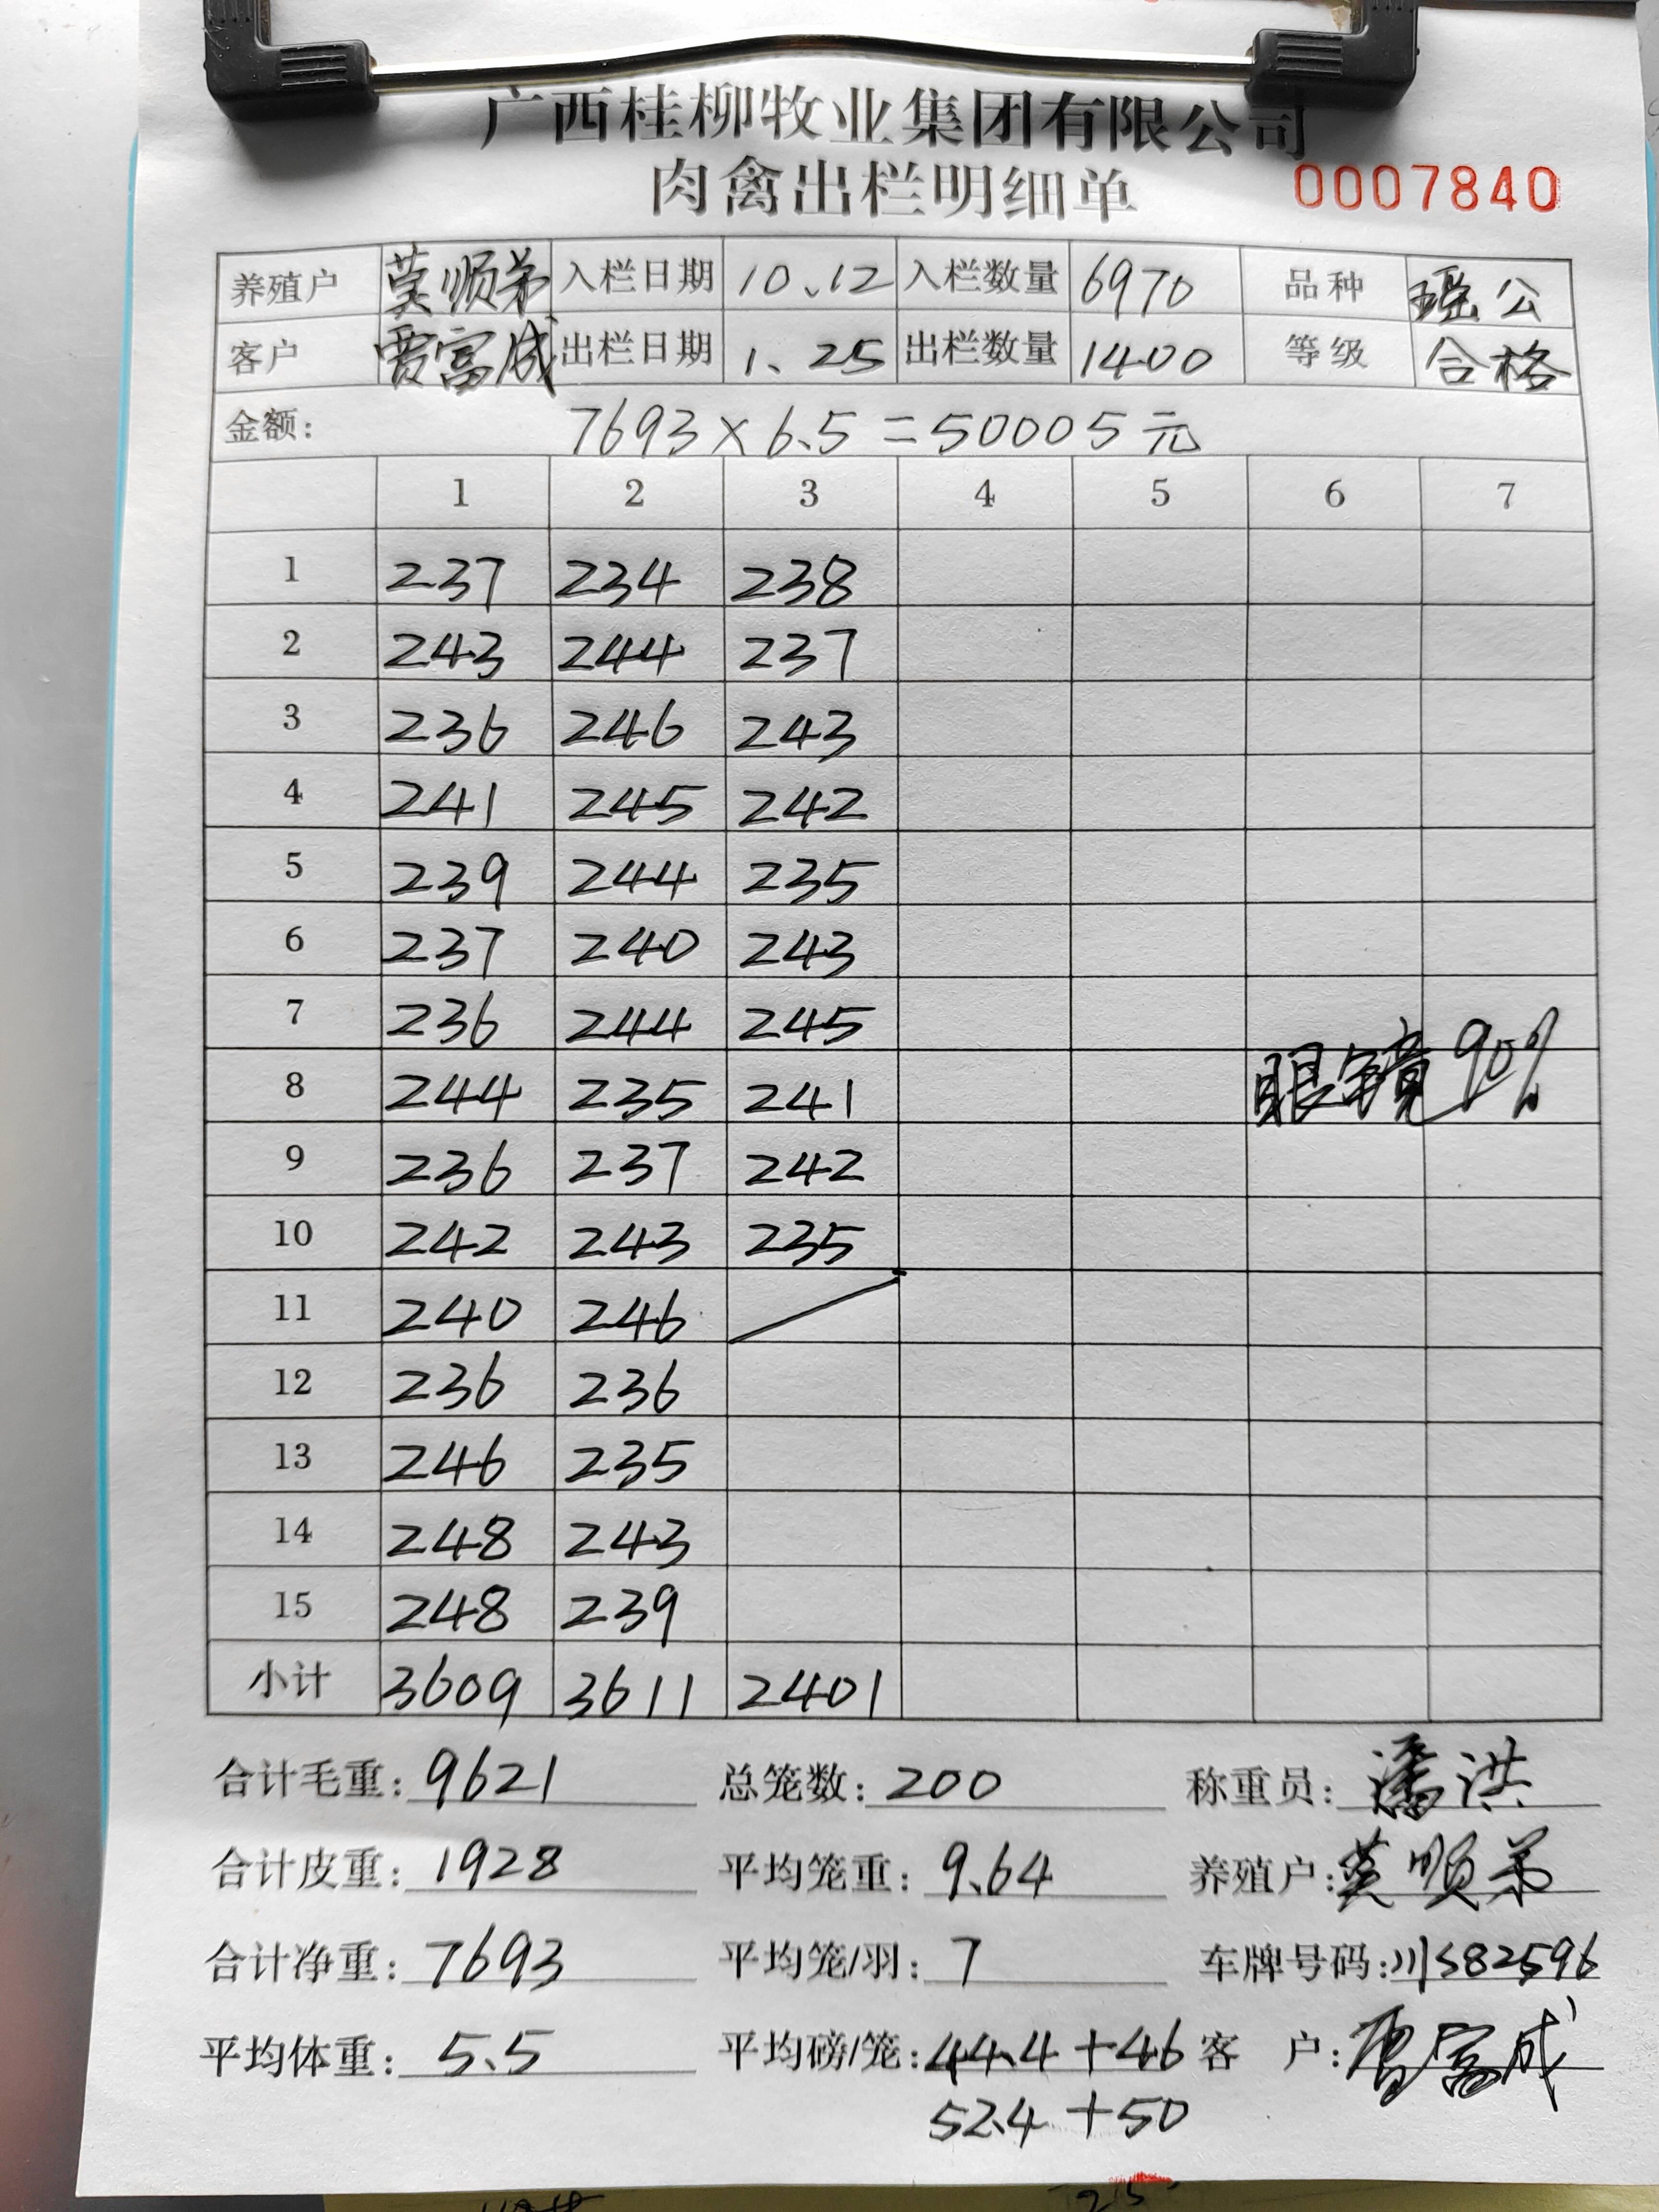 广西桂柳牧业集团有限公司
肉禽出栏明细单 0007840
养殖户 莫顺弟 入栏日期 10、12 入栏数量 6970 品种 瑶公
客户 贾富成 出栏日期 1、25 出栏数量 1400 等级 合格
金额: 7693×6.5=50005元
1 2 3 4 5 6 7
1 237 234 238
2 243 244 237
3 236 246 243
4 241 245 242
5 239 244 235
6 237 240 243
7 236 244 245
8 244 235 241 眼镜90%
9 236 237 242
10 242 243 235
11 240 246
12 236 236
13 246 235
14 248 243
15 248 239
小计 3609 3611 2401
合计毛重: 9621 总笼数: 200 称重员: 潘洪
合计皮重: 1928 平均笼重: 9.64 养殖户: 莫顺弟
合计净重: 7693 平均笼/羽: 7 车牌号码: 川S82596
平均体重: 5.5 平均磅/笼: 44.4+46 客 户: 贾富成
52.4+50